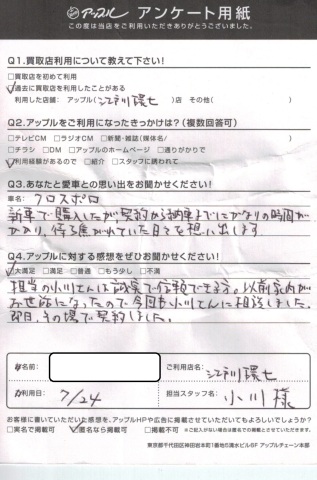 アップル アンケート用紙
この度は当店をご利用いただきありがとうございました。
Q1.買取店利用について教えて下さい!
□買取を初めて利用
☑過去に買取店を利用したことがある
利用した店舗: アップル(江戸川環七)店 その他( )
Q2.アップルをご利用になったきっかけは?(複数回答可)
□テレビCM □ラジオCM □新聞・雑誌(媒体名/ )
□チラシ □DM □アップルのホームページ □通りがかりで
☑利用経験があるので □紹介 □スタッフに誘われて
Q3.あなたと愛車との思い出をお聞かせください!
車名: クロスポロ
新車で購入したが、契約から納車までにかなりの時間が
かかり、待ち焦がれていた日々を想い出します
Q4.アップルに対する感想をぜひお聞かせください!
☑大満足 □満足 □普通 □もう少し □不満
担当の小川さんは誠実で信頼できる方。以前家内が
お世話になったので今回も小川さんに相談しました。
即日、その場で契約しました。
お名前:
ご利用店名: 江戸川環七
ご利用日: 7/24
担当スタッフ名: 小川様
お客様に書いていただいた感想を、アップルHPや広告に掲載させていただいてもよろしいでしょうか?
□実名で掲載可 ☑匿名なら掲載可 □掲載不可 ※ご記入がない場合は匿名での掲載とさせていただきます。
東京都千代田区神田岩本町1番地5清水ビル6F アップルチェーン本部